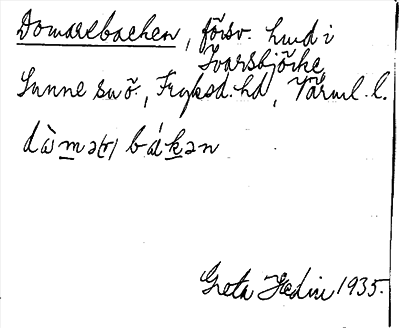 Domarebacken, försv. hmd i
Ivarsbjörke
Sunne snö., Fryksd. hd, Värml. l.
dὰmə(r) bákən
Greta Hedin 1935.